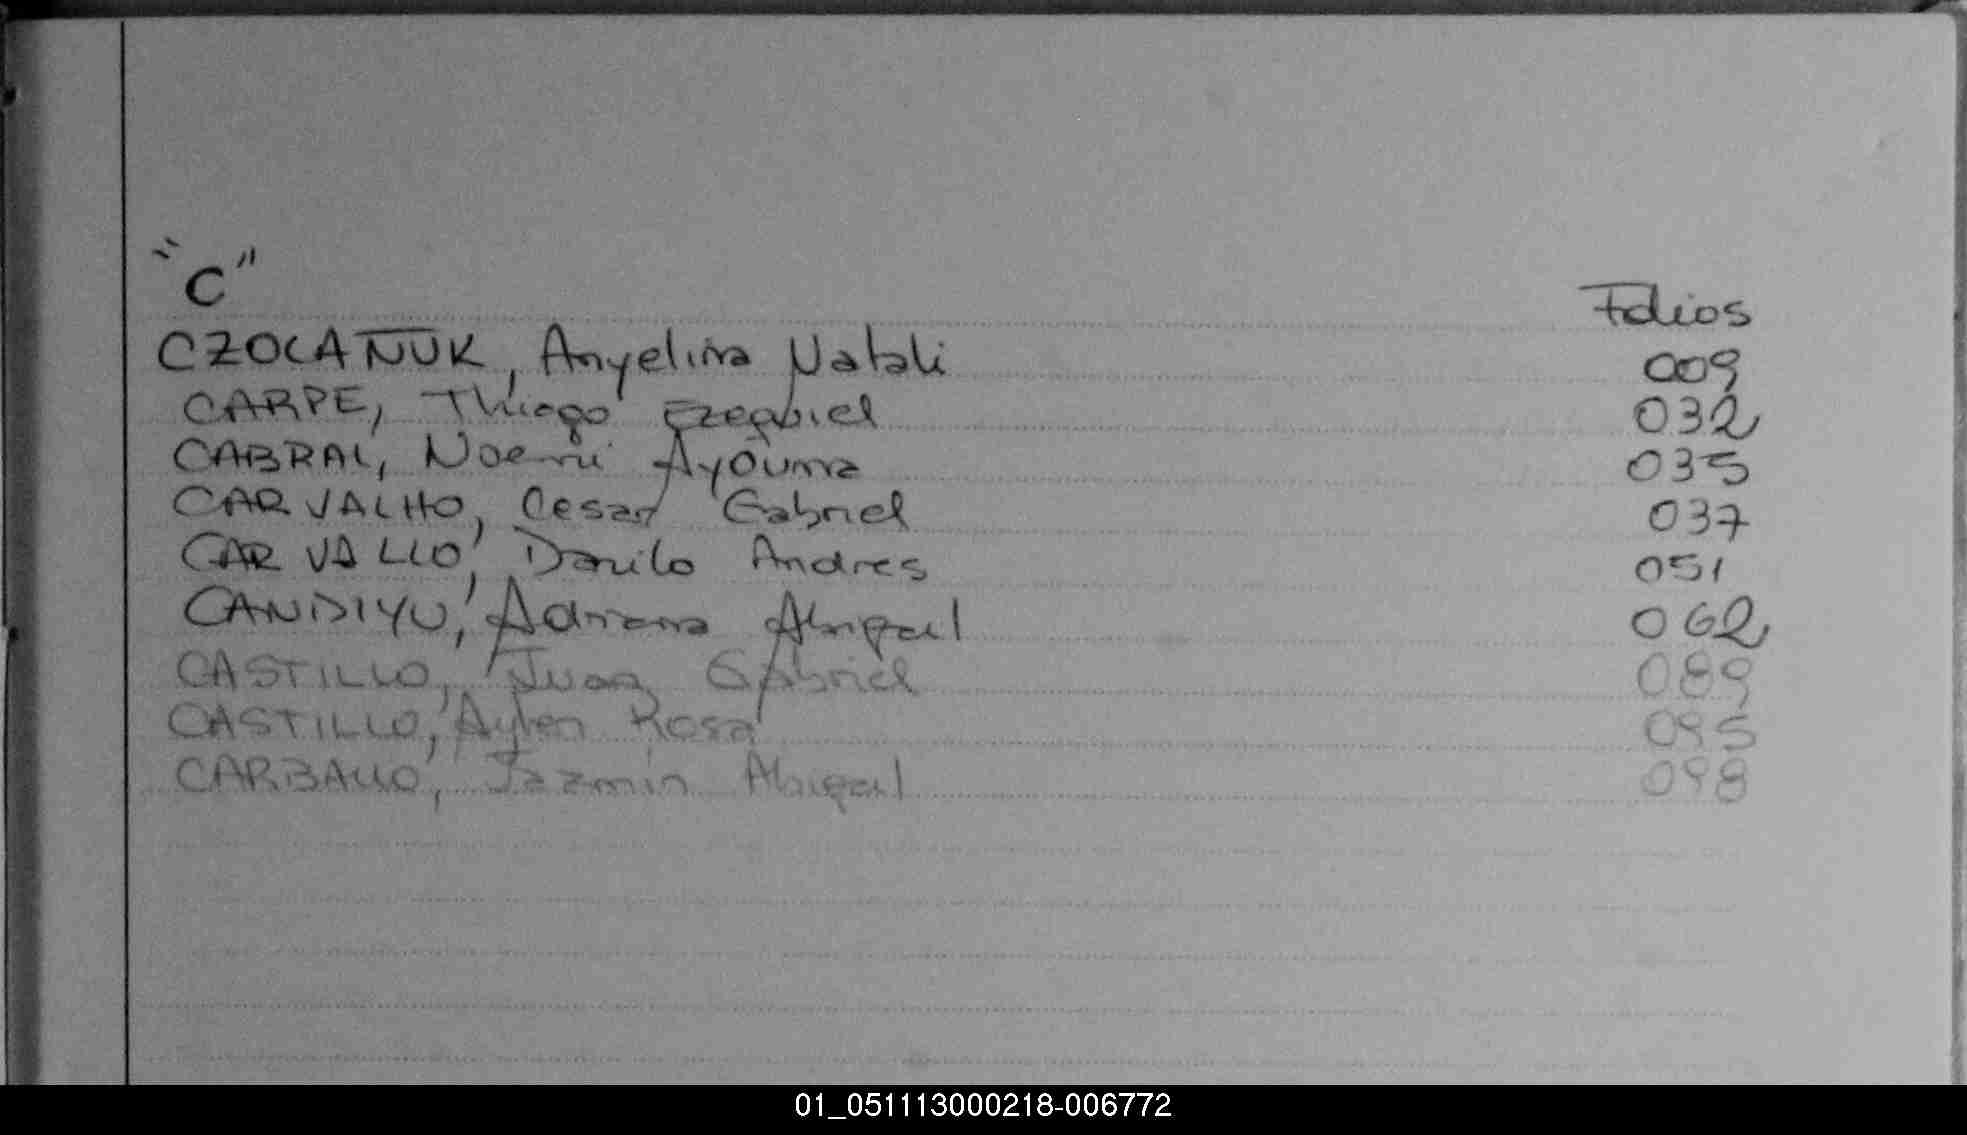 "C"
Folios
CZOLAÑUK, Anyelina Natali 009
CARPE, Thiago Ezequiel 032
CABRAL, Noemi 035
CARVALHO, Cesar Gabriel 037
CARVALLO, Danilo Andres 051
CANDIYU, Adriana Abigail 062
CASTILLO, Juan Gabriel 089
CASTILLO, Aylen Rosa 095
CARBALLO, Jazmin Abigail 098
01_051113000218-006772